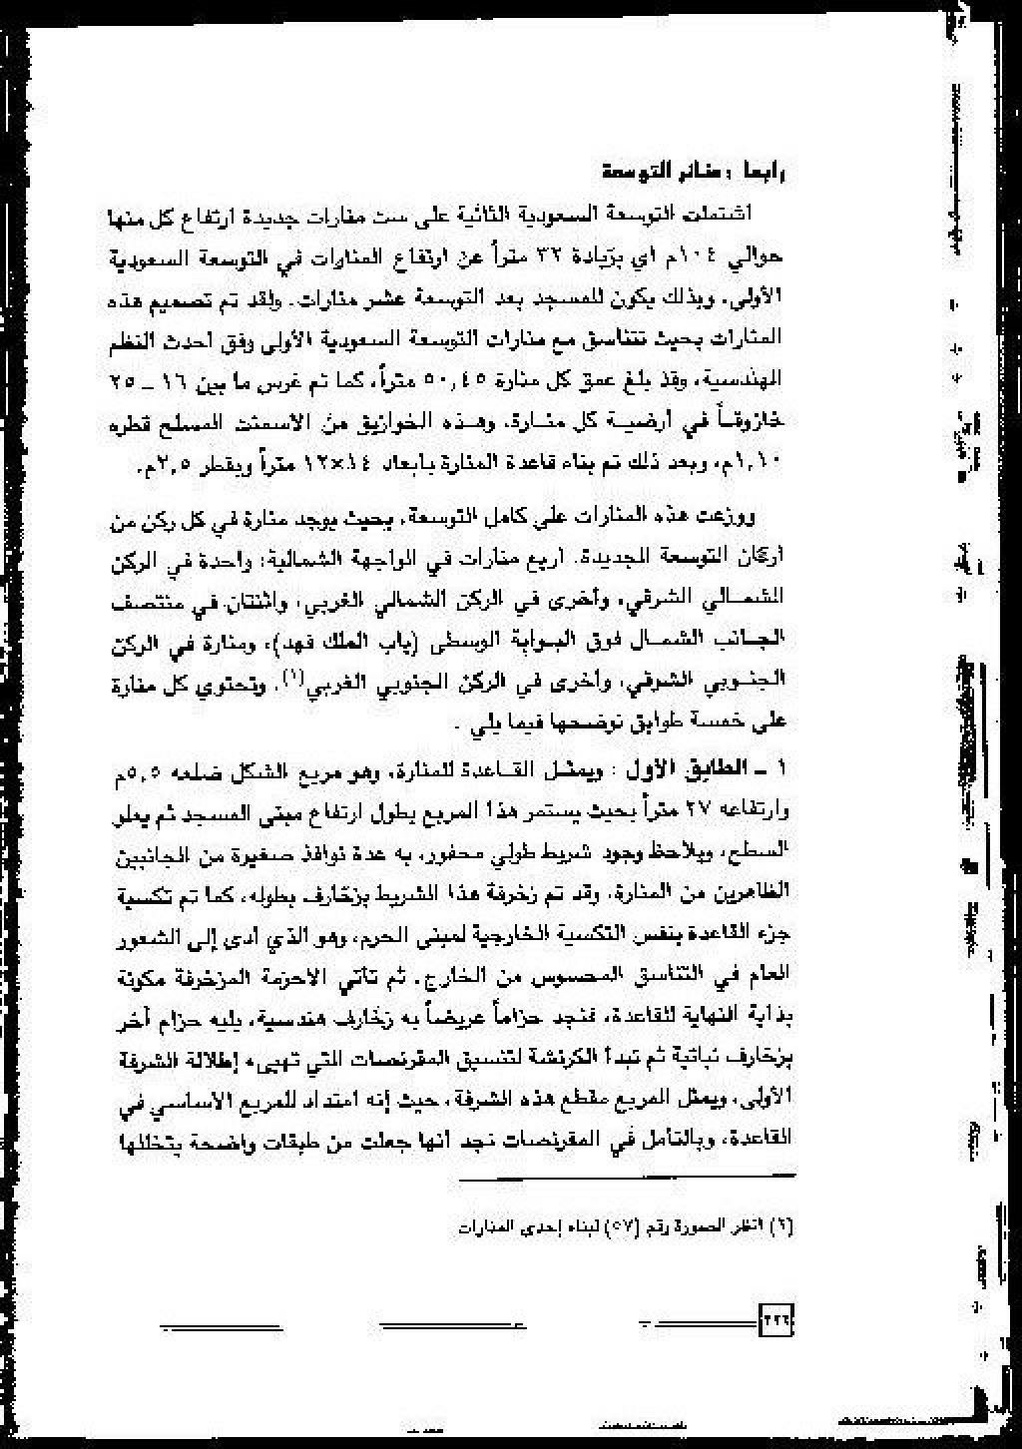 رابعا : منائر التوسعة
اشتملت التوسعة السعودية الثانية على ست منارات جديدة ارتفاع كل منها
حوالي ١٠٤م أي بزيادة ٣٢ متراً عن ارتفاع المنارات في التوسعة السعودية
الأولى، وبذلك يكون للمسجد بعد التوسعة عشر منارات. ولقد تم تصميم هذه
المنارات بحيث تتناسق مع منارات التوسعة السعودية الأولى وفق أحدث النظم
الهندسية، وقد بلغ عمق كل منارة ٥٠,٤٥ متراً، كما تم غرس ما بين ١٦ – ٢٥
خازوقاً في أرضية كل منارة، وهذه الخوازيق من الأسمنت المسلح قطره
١,١٠م، وبعد ذلك تم بناء قاعدة المنارة بأبعاد ١٤×١٢ متراً وبقطر ٢,٥م.
ووزعت هذه المنارات على كامل التوسعة، بحيث يوجد منارة في كل ركن من
أركان التوسعة الجديدة، أربع منارات في الواجهة الشمالية: واحدة في الركن
الشمالي الشرقي، وأخرى في الركن الشمالي الغربي، واثنتان في منتصف
الجانب الشمال فوق البوابة الوسطى (باب الملك فهد)، ومنارة في الركن
الجنوبي الشرقي، وأخرى في الركن الجنوبي الغربي(١). وتحتوي كل منارة
على خمسة طوابق نوضحها فيما يلي .
١ – الطابق الأول : ويمثل القاعدة للمنارة، وهو مربع الشكل ضلعه ٥,٥م
وارتفاعه ٢٧ متراً بحيث يستمر هذا المربع بطول ارتفاع مبنى المسجد ثم يعلو
السطح، ويلاحظ وجود شريط طولي محفور، به عدة نوافذ صغيرة من الجانبين
الظاهرين من المنارة، وقد تم زخرفة هذا الشريط بزخارف بطوله، كما تم تكسية
جزء القاعدة بنفس التكسية الخارجية لمبنى الحرم، وهو الذي أدى إلى الشعور
العام في التناسق المحسوس من الخارج. ثم تأتي الأحزمة المزخرفة مكونة
بداية النهاية للقاعدة، فنجد حزاماً عريضاً به زخارف هندسية، يليه حزام آخر
بزخارف نباتية ثم تبدأ الكرنشة لتنسيق المقرنصات التي تهيىء إطلالة الشرفة
الأولى، ويمثل المربع مقطع هذه الشرفة، حيث إنه امتداد للمربع الأساسي في
القاعدة، وبالتأمل في المقرنصات نجد أنها جعلت من طبقات واضحة يتخللها
(١) انظر الصورة رقم (٥٧) لبناء إحدى المنارات
٢٢٦